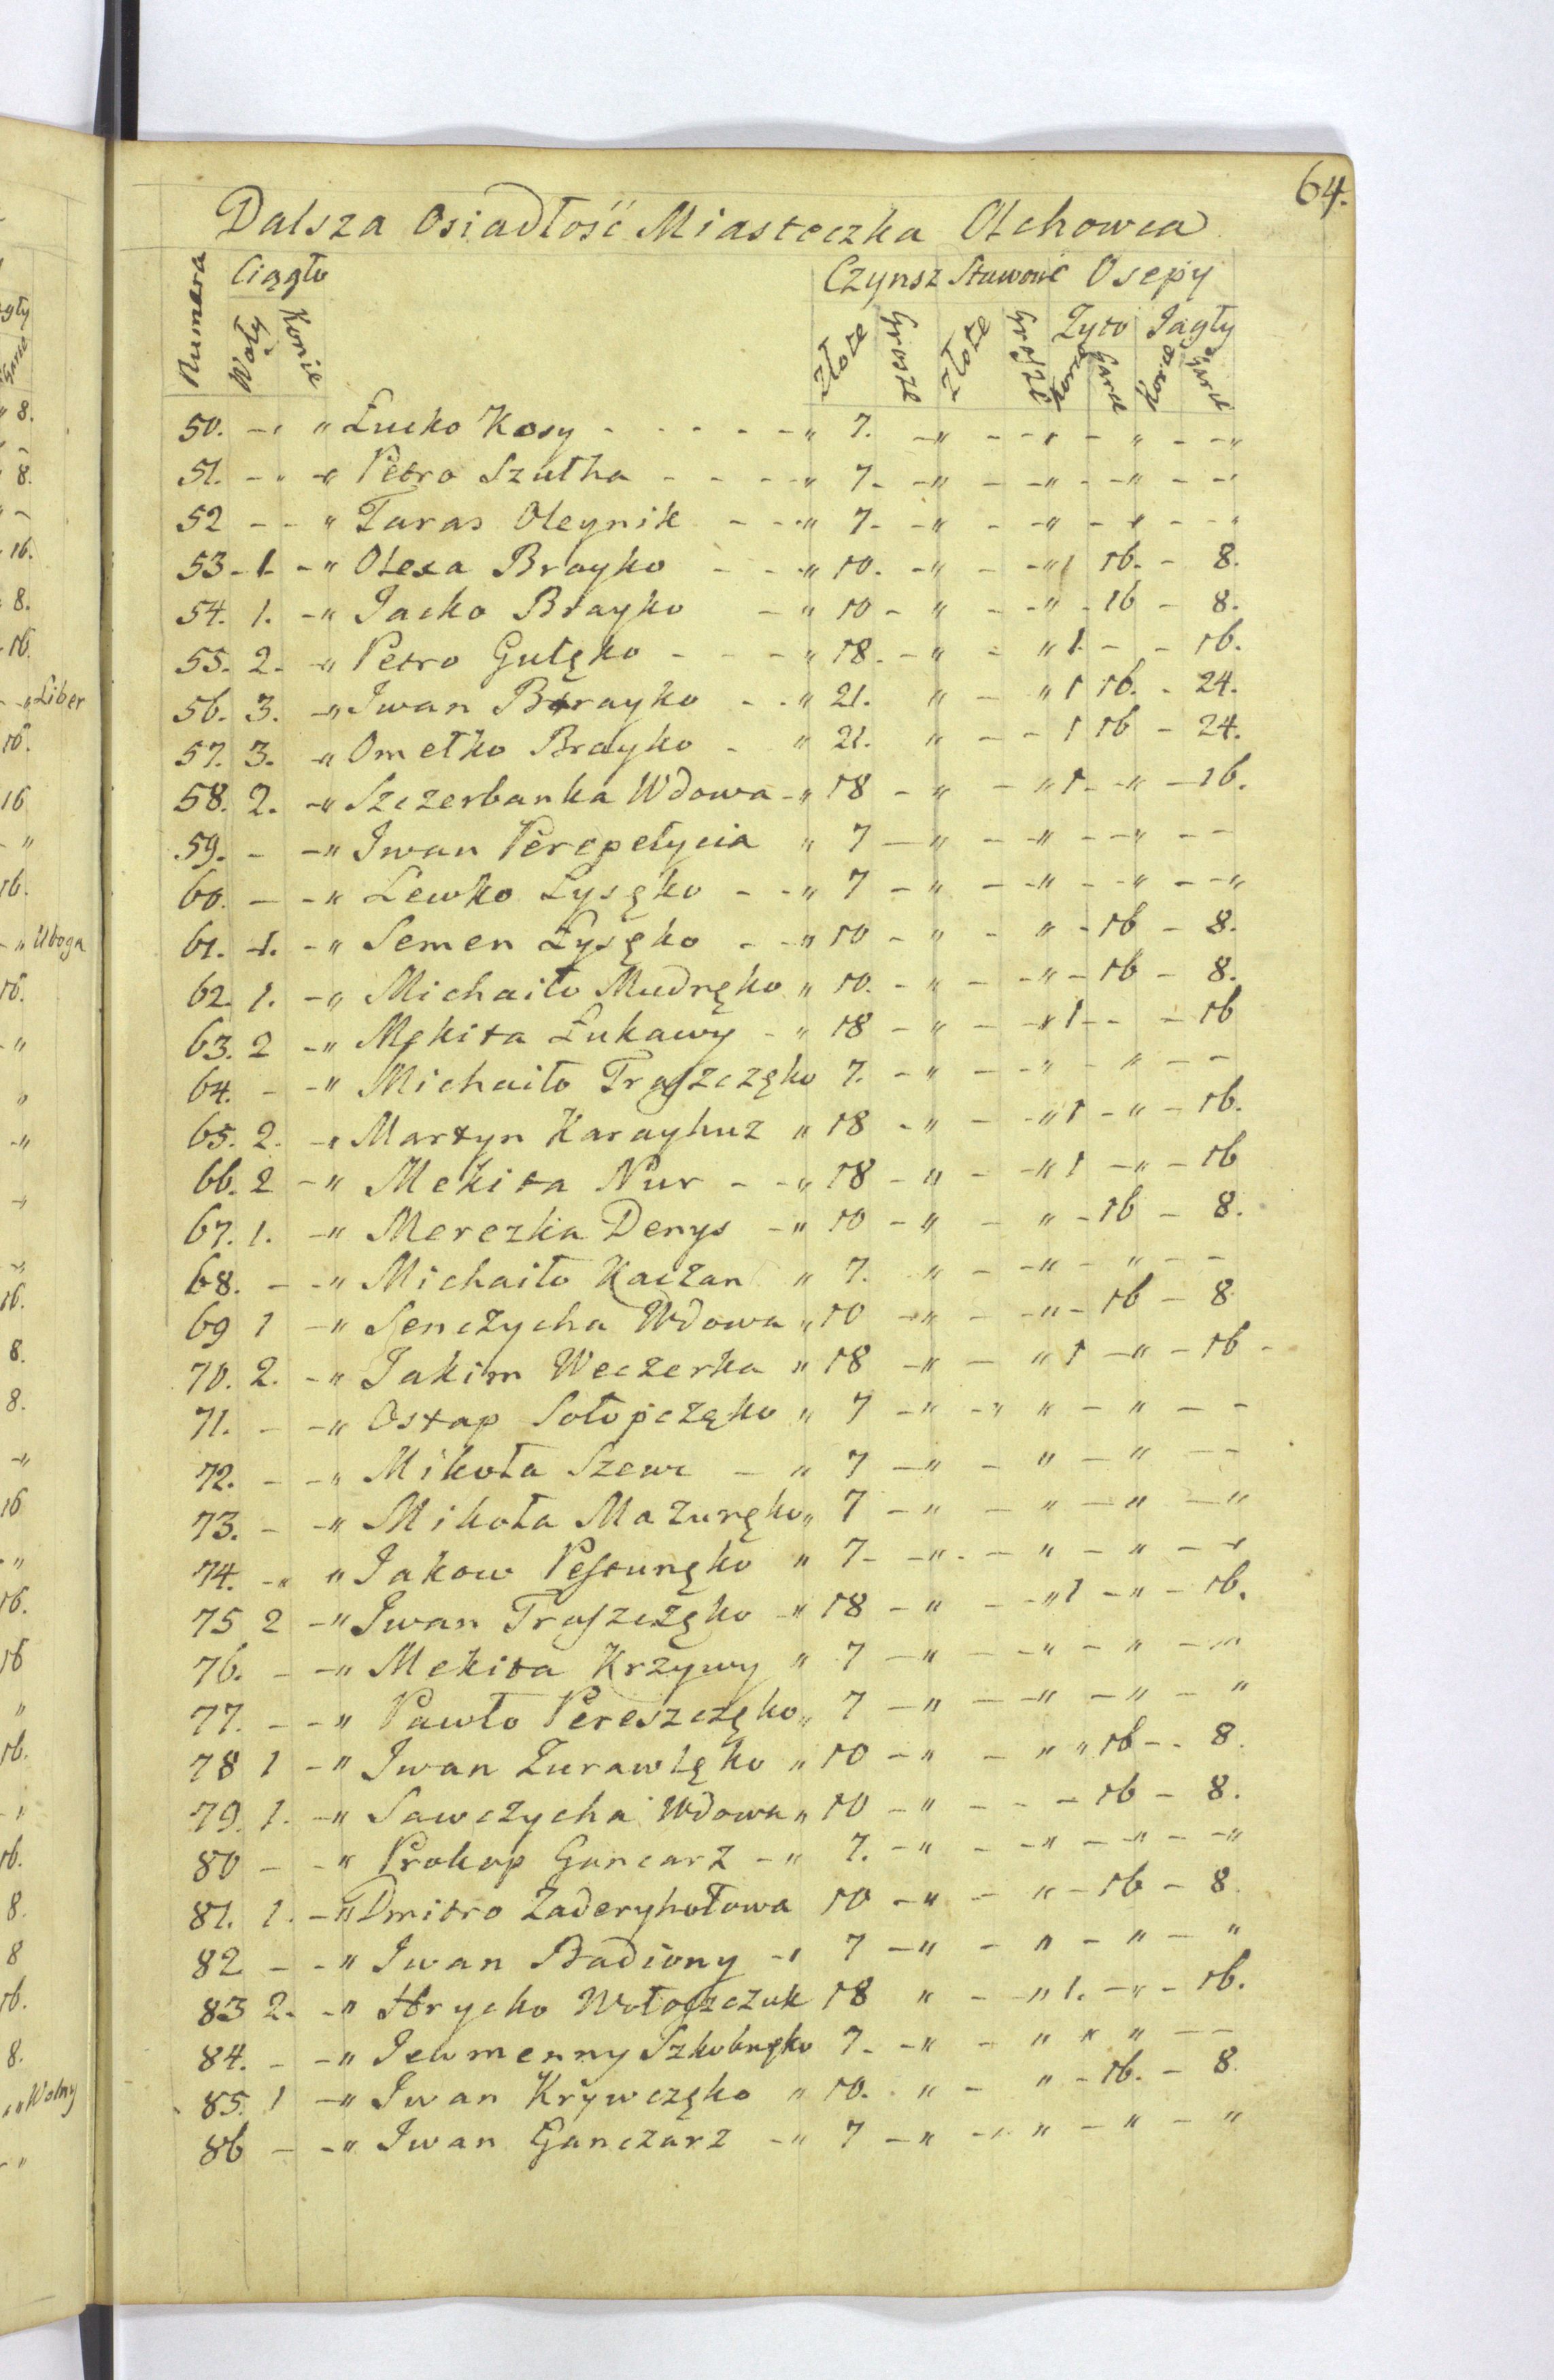 64.
Dalsza Osiadłość Miasteczka Olchowca
Numera Ciągło Czynsz Stawowe Osepy
Woły Konie Złote Grosze Złote Grosze Żyto Jagły
Garce Garce
50. - " " Łucko Kosy - - - - - " 7. - " - - " - " - - "
51. - " - " Petro Szułha - - - - " 7 - - " - - " - - " - - "
52 - - " Taras Oleynik - - - " 7 - - " - - " - " - - "
53 - 1 - - " Olexa Brayko - - - " 10. - " - - " 1 16. - 8.
54. 1. - " Jacko Brayko - " 10 - " - - " - 16 - 8.
55. 2. - " Petro Gulęko - - - - " 18. - " - " 1. - - 16.
56. 3. - " Iwan Brayko - - " 21. " - " 1 16. - 24.
57. 3. - " Omelko Brayko - " 21. " - - 1 16 - 24.
58. 2. - " Szczerbanka Wdowa - " 18 - " - " 1. - " - 16.
59. - - " Iwan Perepełycia " 7 - " - " - - " - -
60. - - " Lewko Łysęko - - " 7 - " - - " - - " - - "
61. 1. - " Semen Łysęko - - " 10 - " - " - 16 - 8.
62. 1. - " Michaiło Mudręko " 10. - " - - " - 16 - 8.
63. 2 - " Mękita Łukawy - " 18 - " - - " 1 - - - 16
64. - - " Michaiło Traszczęko 7. - " - - " - " - -
65. 2. - " Martyn Karayhuz " 18 - " - - " 1 - " - 16.
66. 2 - " Mekita Nur - - " 18 - " - - " 1 - " - 16
67. 1. - " Merezka Denys - " 10 - " - " - 16 - 8.
68. - - " Michaiło Kaczan " 7. " - - " - " - -
69 1 - " Senczycha Wdowa " 10 - " - - " - 16 - 8
70. 2. - " Jakim Weczerka " 18 - " - " 1 - " - 16 -
71. - - " Ostap Sołopczęko " 7 - " - " " - " - -
72. - - " Mikoła Szewc - " 7 - " - " - " - -
73. - - " Mikoła Mazuręko " 7 - " - " - " - "
74. - " " Jakow Pestunęko " 7 - - " - - " - " - - "
75 2 - " Iwan Traszczęko - " 18 - " - - " 1 - " - 16.
76. - - " Mekita Krzywy " 7 - " - - " - " - - "
77. - - " Pawło Pereszczęko " 7 - " - - " - " - "
78 1 - " Iwan Żurawlęko " 10 - " - " " 16 - - 8.
79. 1. - " Sawczycha Wdowa " 10 - " - - - 16 - 8.
80 - - " Prokop Gancarz - " 7. - " - - " - " - - "
81. 1. - " Dmitro Zaderyhołowa 10 - " - " - 16 - 8.
82 - - " Iwan Badiony - " 7 - " - " - " - "
83 2. - " Hrycko Wołoszczuk 18 " - " 1. - " - 16.
84. - - " Jewmenny 7. - " - " " " - -
85. 1 - " Iwan Krywczęko " 10. " - " - 16. - 8.
86 - - " Iwan Ganczarz - " 7 - " - " " - " - "
Liber
Uboga
Wolny